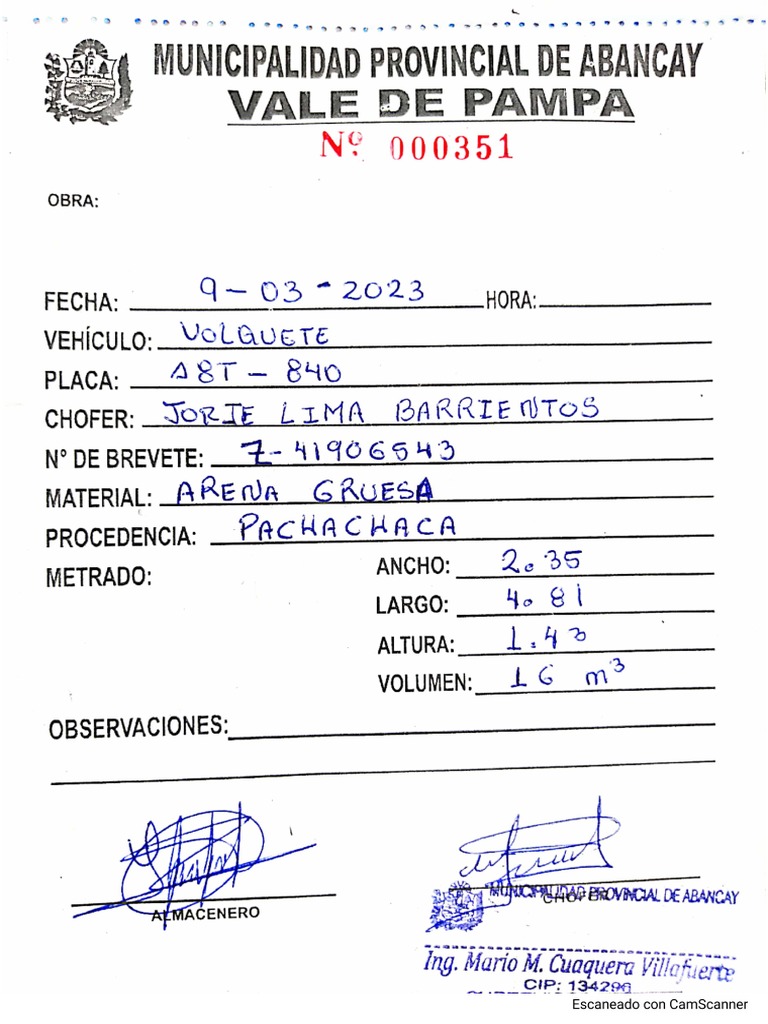 MUNICIPALIDAD PROVINCIAL DE ABANCAY
VALE DE PAMPA
Nº 000351
OBRA:
FECHA: 9-03-2023 HORA:
VEHÍCULO: VOLQUETE
PLACA: A8T-840
CHOFER: JORJE LIMA BARRIENTOS
N° DE BREVETE: Z-41906543
MATERIAL: ARENA GRUESA
PROCEDENCIA: PACHACHACA
METRADO:
ANCHO: 2.35
LARGO: 4.81
ALTURA: 1.43
VOLUMEN: 16 m³
OBSERVACIONES:
ALMACENERO
CHOFER
MUNICIPALIDAD PROVINCIAL DE ABANCAY
Ing. Mario M. Cuaquera Villafuerte
CIP: 134296
Escaneado con CamScanner